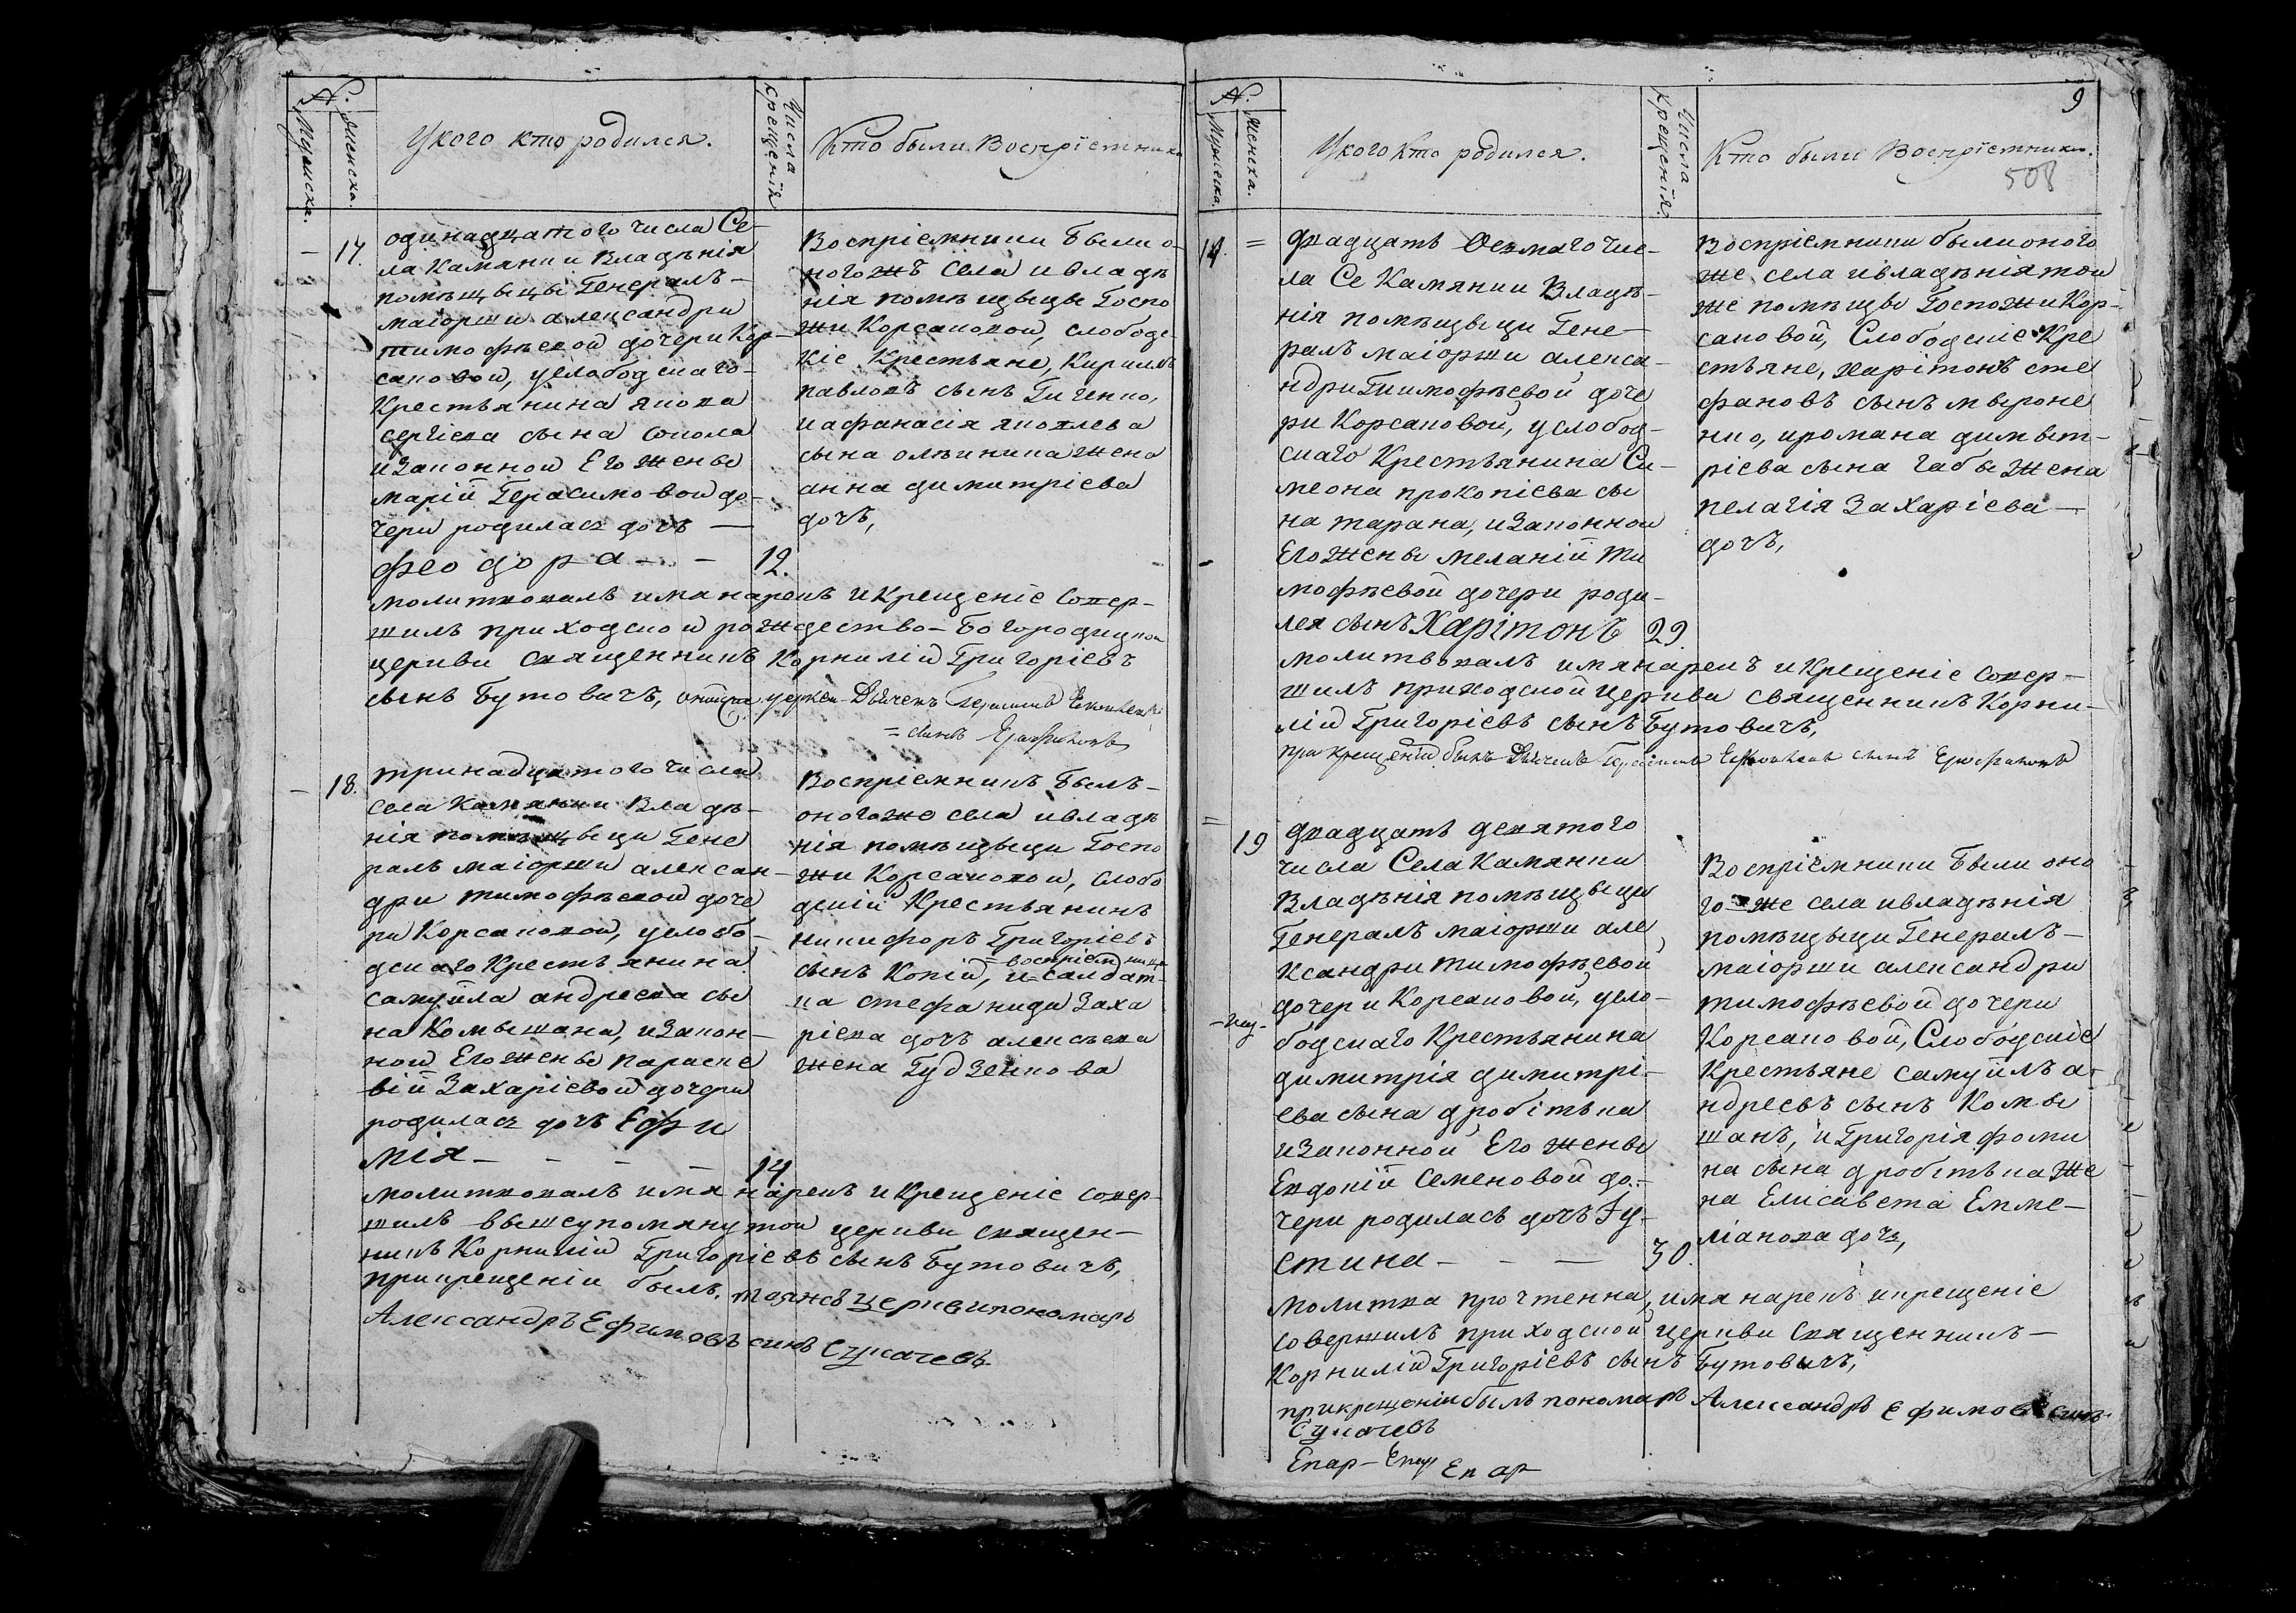 N.
Мужеска.
Женска.
У кого кто родился.
Числа крещенія
Кто были Воспріемники
17.
одинадцатого числа Се-
ла Камянки Владѣнія
помѣщыцы Генералъ-
маіорши александри
тимофѣевой дочери Кор-
саковой, услободскаго
Крестьянина якова
сергіева сына сокола
изаконной Его жены
марій Герасимовой до-
чери родилась дочъ —
феодора - - 12.
Воспріемники были о-
ногожъ села ивладѣ
нія помѣщыцы Госпо
жи Корсаковой, слободс
кіе Крестьяне, Кирилъ
павловъ сынъ Гиченко,
иафанасія яковлева
сына олѣиника жена
анна димитріева
дочъ,
молитвовалъ имя нарекъ и Крещеніе совер-
шилъ приходской рождество-Богородицкой
церкви священникъ Корнилій Григоріевъ
сынъ Бутовичъ, церкви Дьячекъ
= сынъ
18.
тринадцатого числа
села Камянки Владѣ-
нія помѣщыци Гене
ралъ маіорши алексан-
дри тимофѣевой доче
ри Корсаковой, услобо-
дскаго Крестьянина
самуйла андреева сы
на Комышана, изакон-
ной Его жены параске
вій Захаріевой дочери
родилась дочъ Ефи
мія - - - - 14
Воспріемникъ былъ-
оногоже села ивладѣ
нія помѣщыци Госпо
жи Корсаковой, слобо
дскій Крестьянинъ
никифоръ Григоріевъ
= воспріемница
сынъ Копій, и=салдат-
ка стефанида Заха
ріева дочъ алексѣева
жена Гудзенкова
молитвовалъ имя нарекъ и Крещеніе совер-
шилъ вышеупомянутой церкви священ-
никъ Корнилій Григоріевъ сынъ Бутовичъ,
прикрещеніи былъ, тояжъ церкви пономарь
Александръ Ефимовъ синъ Сукачевъ
9
N.
Мужеска.
Женска.
У кого кто родился.
Числа крещенія.
Кто были Воспріемники.
508
14.
двадцать Осмаго чис-
ла Се Камянки Владѣ-
нія помѣщыци Гене-
ралъ маіорши алекса-
ндри Тимофѣевой доче
ри Корсаковой, услобод-
скаго Крестьянина Си-
меона прокопіева сы
на тарана, изаконной
Его жены меланій ти
мофѣевой дочери роди-
лся сынъ Харітонъ 29.
Воспріемники были оного
же села ивладѣнія той
же помѣщцы Госпожи Кор-
саковой, Слободскіе Кре
стьяне, харітонъ сте
фановъ сынъ мыроне
нко, иромана димыт-
ріева сына габы жена
пелагія Захаріева —
дочъ,
молитвовалъ имя нарекъ и Крещеніе совер-
шилъ приходской церкви священникъ Корни-
лій Григоріевъ сынъ Бутовичъ,
при крещеніи былъ Дьячекъ сынъ
19
двадцать девятого
числа Села Камянки
Владѣнія помѣщыцы
Генералъ маіорши але
ксандри тимофѣевой
дочери Корсаковой, усло-
бодскаго Крестьянина
димитрія димитрі-
ева сына дробітька
изаконной Его жены
Евдокій Семеновой до-
чери родилась дочъ Іу-
стина - - — 30.
Воспріемники были оно
го-же села ивладѣнія
помѣщыци Генералъ-
маіорши александри
тимофѣевой дочери
Корсаковой, Слободскіе
Крестьяне самуйлъ а-
ндреевъ сынъ Комы
шанъ, и Григорія фоми
на сына дробітька же
на Елисавета Емме-
ліанова дочъ,
Молитва прочтенна, имя нарекъ икрещеніе
совершилъ приходской церкви Священникъ-
Корнилій Григоріевъ сынъ Бутовичъ,
прикрещеніи былъ пономарь Александръ Ефимовъ синъ
Сукачевъ
Епар- Епар Епар